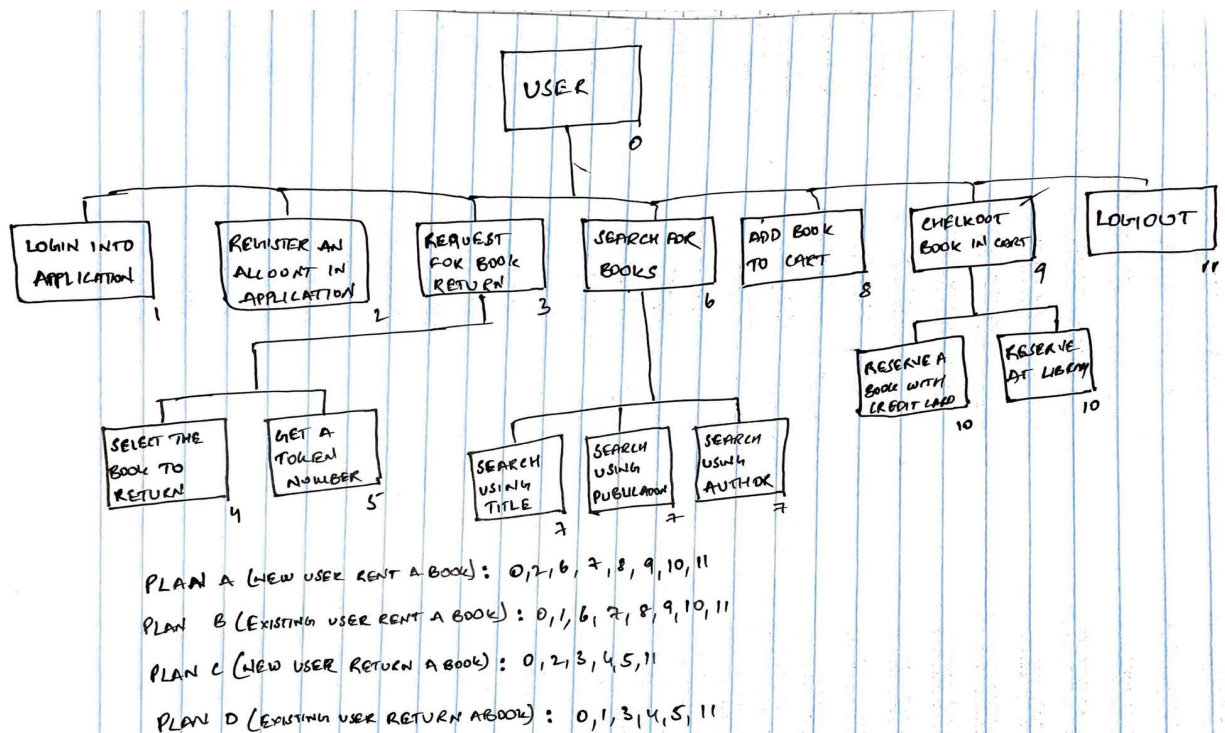 USER
0
LOGIN INTO
APPLICATION
1
REGISTER AN
ACCOUNT IN
APPLICATION
2
REQUEST
FOR BOOK
RETURN
3
SEARCH FOR
BOOKS
6
ADD BOOK
TO CART
8
CHECKOUT
BOOK IN CART
9
LOGOUT
11
SELECT THE
BOOK TO
RETURN
4
GET A
TOKEN
NUMBER
5
SEARCH
USING
TITLE
7
SEARCH
USING
PUBLICATION
7
SEARCH
USING
AUTHOR
7
RESERVE A
BOOK WITH
CREDIT CARD
10
RESERVE
AT LIBRARY
10
PLAN A (NEW USER RENT A BOOK) : 0,2,6,7,8,9,10,11
PLAN B (EXISTING USER RENT A BOOK) : 0,1,6,7,8,9,10,11
PLAN C (NEW USER RETURN A BOOK) : 0,2,3,4,5,11
PLAN D (EXISTING USER RETURN A BOOK) : 0,1,3,4,5,11